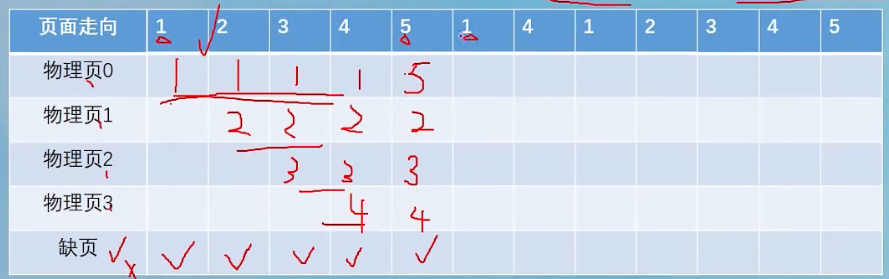 页面走向 1 2 3 4 5 1 4 1 2 3 4 5
物理页0 1 1 1 1 5
物理页1 2 2 2 2
物理页2 3 3 3
物理页3 4 4
缺页 √ x √ √ √ √ √